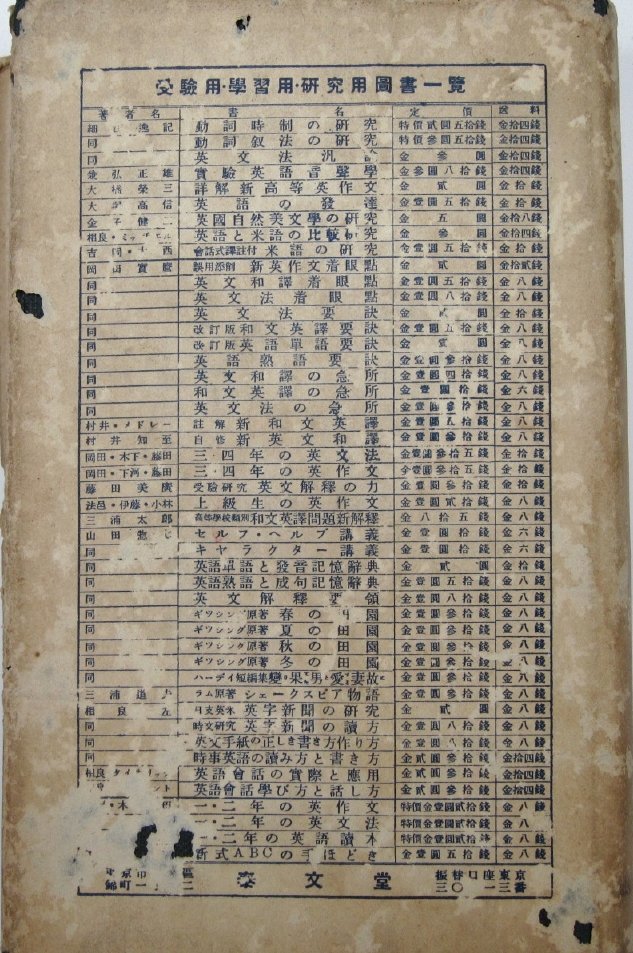 受驗用・學習用・研究用圖書一覽
著者名 書名 定價 送料
細 逸記 動詞時制の研究 特價貳圓五拾錢 金拾四錢
同 動詞叙法の研究 特價參圓五拾錢 金拾四錢
同 英文法汎論 金參圓 金拾四錢
弘正雄 實驗英語音聲學 金參圓八拾錢 金拾四錢
大 榮三 詳解新高等英作文 金貳圓 金拾錢
大 高信 英語の發達 金壹圓五拾錢 金拾錢
金子健二 英國自然美文學の研究 金五圓 金拾八錢
相良・ミッチェル 英語と米語の比較研究 金參圓 金拾四錢
吉 ・ 西 會話式譯註付 米語の研究 金壹圓五拾錢 金拾錢
岡田實麿 誤用添削 新英作文着眼點 金貳圓 金拾貳錢
同 英文和譯着眼點 金壹圓五拾錢 金八錢
同 英文法着眼點 金壹圓八拾錢 金八錢
同 英文法要訣 金貳圓 金拾錢
同 改訂版 和文英譯要訣 金壹圓五拾錢 金八錢
同 改訂版 英語單語要訣 金壹圓 金八錢
同 英語熟語要訣 金壹圓參拾錢 金八錢
同 英文和譯の急所 金壹圓四拾錢 金八錢
同 和文英譯の急所 金壹圓拾錢 金六錢
同 英文法の急所 金壹圓參拾錢 金八錢
村井・メドレー 註解 新和文英譯 金壹圓五拾錢 金八錢
村井知至 自修 新英文和譯 金壹圓參拾錢 金八錢
岡田・木下・藤田 三・四年の英文法 金壹圓參拾五錢 金拾錢
岡田・下河・藤田 三・四年の英作文 金壹圓參拾五錢 金拾錢
藤田美 受驗研究 英文解釋の力 金壹圓參拾錢 金八錢
法邑・伊藤・小林 上級生の英作文 金壹圓貳拾錢 金八錢
三浦太郎 高等學校類別 和文英譯問題新解釋 金八拾五錢 金八錢
山田惣七 セルフ・ヘルプ講義 金壹圓拾錢 金六錢
同 キャラクター講義 金壹圓拾錢 金六錢
同 英語單語と發音記憶辭典 金貳圓 金拾錢
同 英語熟語と成句記憶辭典 金壹圓五拾錢 金八錢
同 英文解釋要領 金壹圓八拾錢 金八錢
同 ギッシング原著 春の田園 金壹圓參拾錢 金八錢
同 ギッシング原著 夏の田園 金壹圓參拾錢 金八錢
同 ギッシング原著 秋の田園 金壹圓參拾錢 金八錢
同 ギッシング原著 冬の田園 金壹圓參拾錢 金八錢
同 ハーデイ短編集 變り果てた男と愛妻故に 金壹圓參拾錢 金八錢
三浦道 ラム原著 シェークスピア物語 金壹圓參拾錢 金八錢
相良左 日支英米 英字新聞の研究 金貳圓 金八錢
同 時文研究 英字新聞の讀方 金壹圓八拾錢 金八錢
同 英文手紙の正しき書き方作り方 金壹圓八拾錢 金八錢
同 時事英語の讀み方と書き方 金貳圓參拾錢 金拾四錢
相良・ 英語會話の實際と應用 金貳圓參拾錢 金拾四錢
英語會話學び方と話し方 金貳圓參拾錢 金拾四錢
・木 一・二年の英作文 特價金壹圓貳拾錢 金八錢
一・二年の英文法 特價金壹圓貳拾錢 金八
一・二年の英語讀本 特價金壹圓貳拾錢 金八錢
新式ABCの手ほどき 金壹圓五拾錢 金八錢
東京市 區 錦町一 二 泰文堂 振替口座東京 三〇一三番